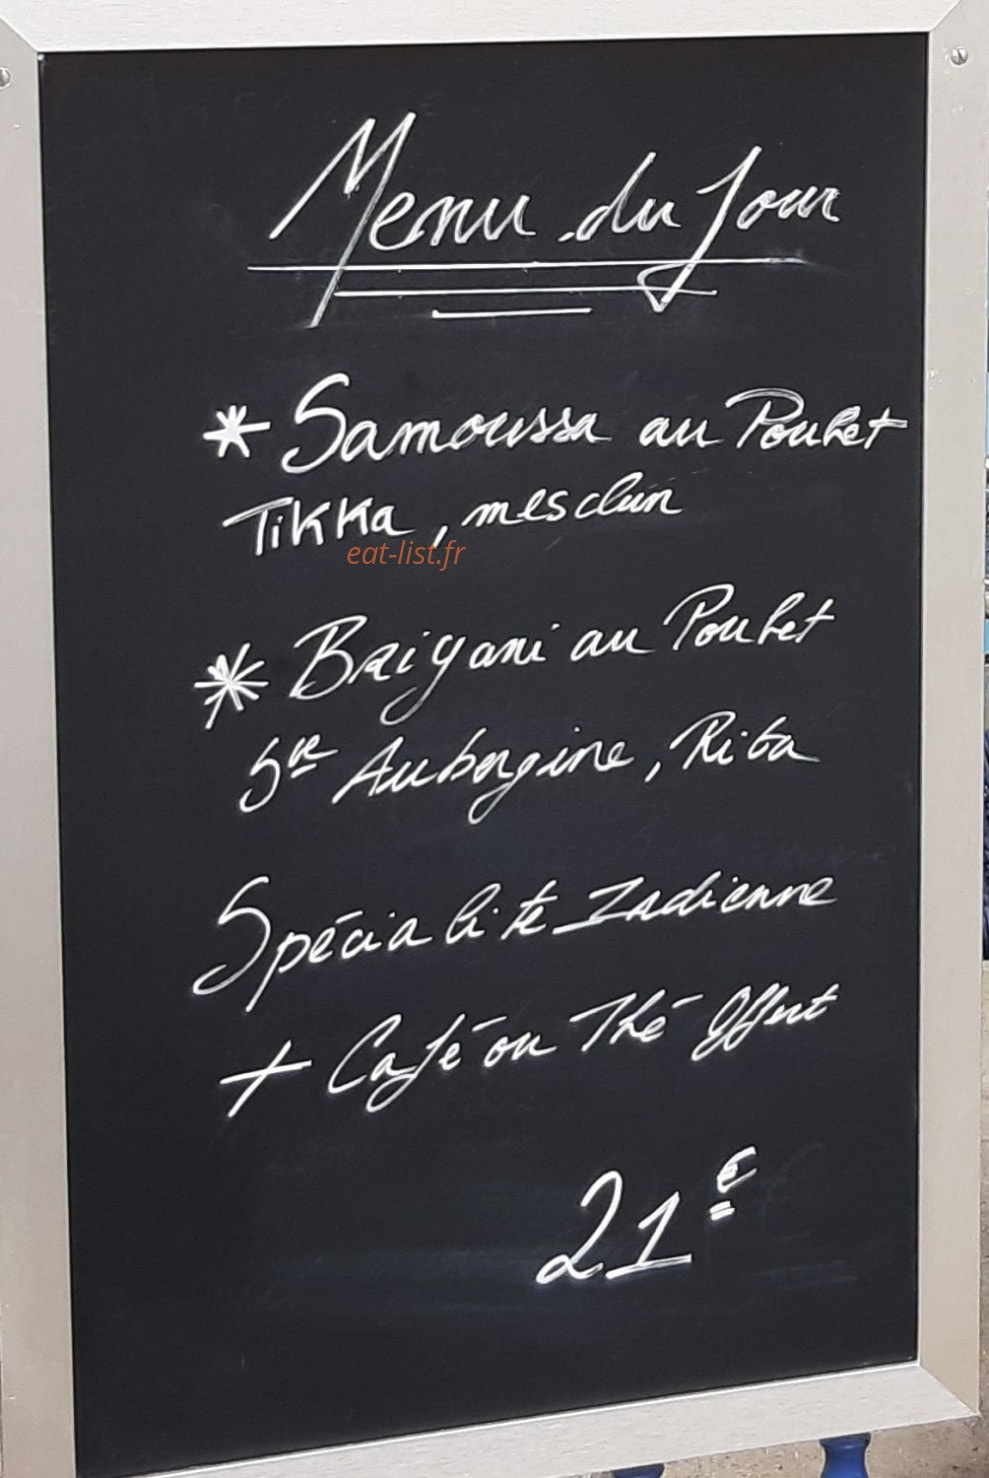 Menu du Jour
* Samoussa au Poulet
Tikka, mesclun
eat-list.fr
* Briyani au Poulet
Sce Aubergine, Rita
Spécialité Indienne
+ Café ou Thé Offert
21€